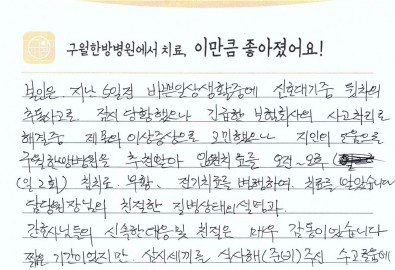 구월한방병원에서 치료, 이만큼 좋아졌어요!
본인은 지난 6일경 바쁜일상생활중에 신호대기중 뒷차의
추돌사고로 잠시 당황했으나 긴급한 보험회사의 사고처리로
해결중 제몸의 이상증상으로 고민했으나 지인의 도움으로
구월한방병원을 추천받아 입원치료를 오전·오후
(일 2회) 침치료. 부황. 전기치료를 병행하여 치료를 받았습니다
담당원장님의 친절한 질병상태의 설명과
간호사님들의 신속한 대응 및 친절은 매우 감동이었습니다
짧은 기간이었지만 삼시세끼를 식사해(준비)주신 수고로움에